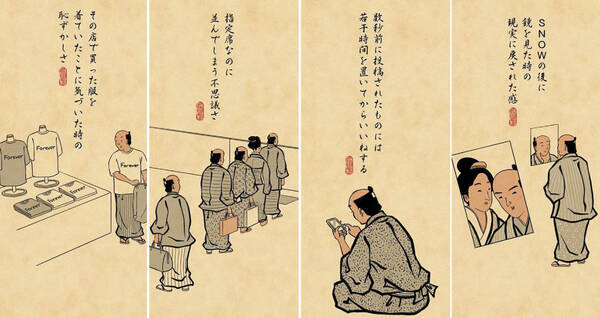 その店で買った服を
着ていたことに気づいた時の
恥ずかしさ
Forever
Forever
Forever
Forever
Forever
指定席なのに
並んでしまう不思議さ
数秒前に投稿されたものには
若干時間を置いてからいいねする
SNOWの後に
鏡を見た時の
現実に戻された感